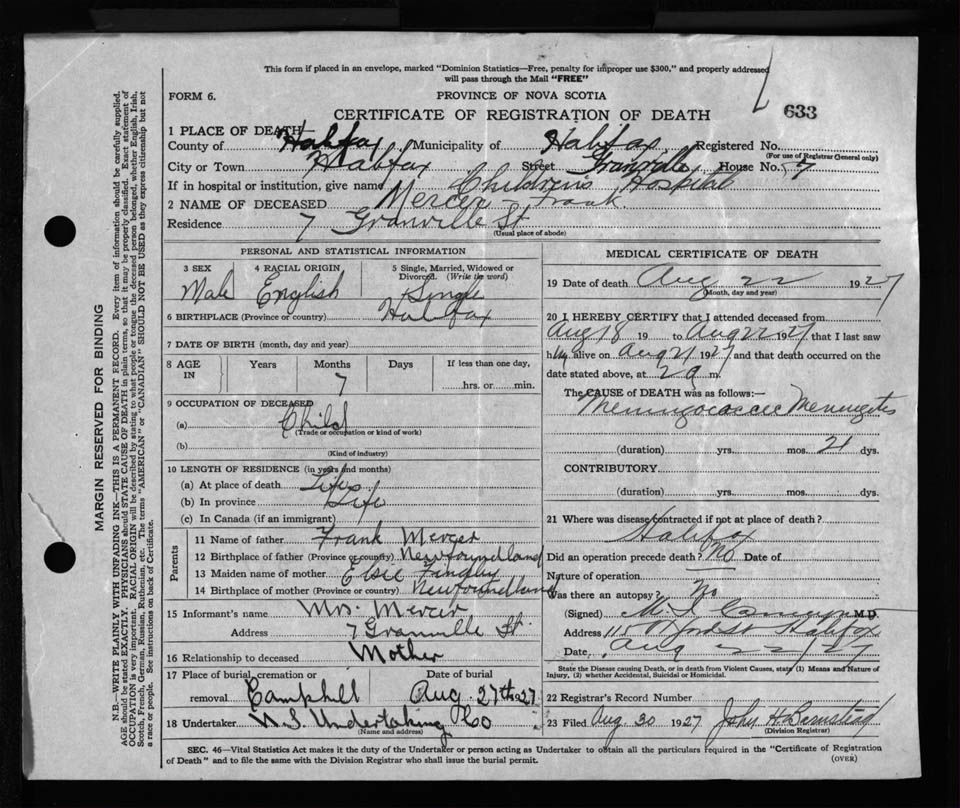 This form if placed in an envelope, marked "Dominion Statistics—Free, penalty for improper use $300," and properly addressed
will pass through the Mail "FREE"
FORM 6.
PROVINCE OF NOVA SCOTIA
CERTIFICATE OF REGISTRATION OF DEATH
633
1 PLACE OF DEATH—
County of Halifax Municipality of Halifax Registered No.
(For use of Registrar General only)
City or Town Halifax Street Granville House No. 7
If in hospital or institution, give name Childrens Hospital
2 NAME OF DECEASED Mercer Frank
Residence 7 Granville St
(Usual place of abode)
PERSONAL AND STATISTICAL INFORMATION
3 SEX 4 RACIAL ORIGIN 5 Single, Married, Widowed or
Divorced. (Write the word)
Male English Single
6 BIRTHPLACE (Province or country) Halifax
7 DATE OF BIRTH (month, day and year)
8 AGE IN Years Months Days If less than one day,
7 hrs. or min.
9 OCCUPATION OF DECEASED
(a) Child
(Trade or occupation or kind of work)
(b)
(Kind of industry)
10 LENGTH OF RESIDENCE (in years and months)
(a) At place of death Life
(b) In province Life
(c) In Canada (if an immigrant)
Parents
11 Name of father Frank Mercer
12 Birthplace of father (Province or country) Newfoundland
13 Maiden name of mother Elsie
14 Birthplace of mother (Province or country) Newfoundland
15 Informant's name Mrs. Mercer
Address 7 Granville St
16 Relationship to deceased Mother
17 Place of burial, cremation or Date of burial
removal Camphill Aug. 27th 1927
18 Undertaker N.S. Undertaking Co
(Name and address)
MEDICAL CERTIFICATE OF DEATH
19 Date of death Aug 22 1927
(Month, day and year)
20 I HEREBY CERTIFY that I attended deceased from
Aug 18 19 to Aug 22 1927 that I last saw
him alive on Aug 21 1927 and that death occurred on the
date stated above, at 2 a m.
The CAUSE OF DEATH was as follows:—
Meningococcic Meningitis
(duration) yrs. mos. 21 dys.
CONTRIBUTORY
(duration) yrs. mos. dys.
21 Where was disease contracted if not at place of death?
Halifax
Did an operation precede death? No Date of
Nature of operation
Was there an autopsy? No
(Signed) M.D.
Address Halifax
Date, Aug 22/27
State the Disease causing Death, or in death from Violent Causes, state (1) Means and Nature of
Injury, (2) whether Accidental, Suicidal or Homicidal.
22 Registrar's Record Number
23 Filed Aug 30 1927 John H Barnstead
(Division Registrar)
SEC. 46—Vital Statistics Act makes it the duty of the Undertaker or person acting as Undertaker to obtain all the particulars required in the "Certificate of Registration
of Death" and to file the same with the Division Registrar who shall issue the burial permit.
(OVER)
MARGIN RESERVED FOR BINDING
N.B.—WRITE PLAINLY WITH UNFADING INK—THIS IS A PERMANENT RECORD. Every item of information should be carefully supplied.
AGE should be stated EXACTLY. PHYSICIANS should STATE CAUSE OF DEATH in plain terms, so that it may be properly classified. Exact statement of
OCCUPATION is very important. RACIAL ORIGIN will be described by stating to what people or tongue the deceased person belonged, whether English, Irish,
Scotch, French, German, Russian, Ruthenian, etc. The terms "AMERICAN" or "CANADIAN" SHOULD NOT BE USED as they express citizenship but not
a race or people. See instructions on back of Certificate.